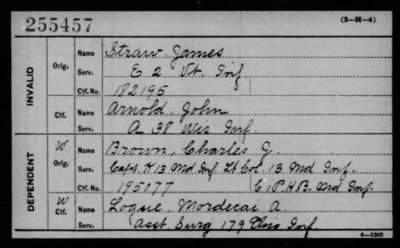 255457 (3-H-4)
INVALID
Orig. Name Straw, James
Serv. E 2 Vt. Inf
Ctf. No. 182195
Ctf. Name Arnold, John
Serv. A 38 Wis Inf.
DEPENDENT
W Orig. Name Brown, Charles J.
Serv. Capt. K 13 Md Inf. Lt Col. 13 Md Inf.
Ctf. No. 195077 C 1 P.H.B. Md Inf.
W Ctf. Name Logue, Mordecai A.
Serv. Asst Surg 179 Inf.